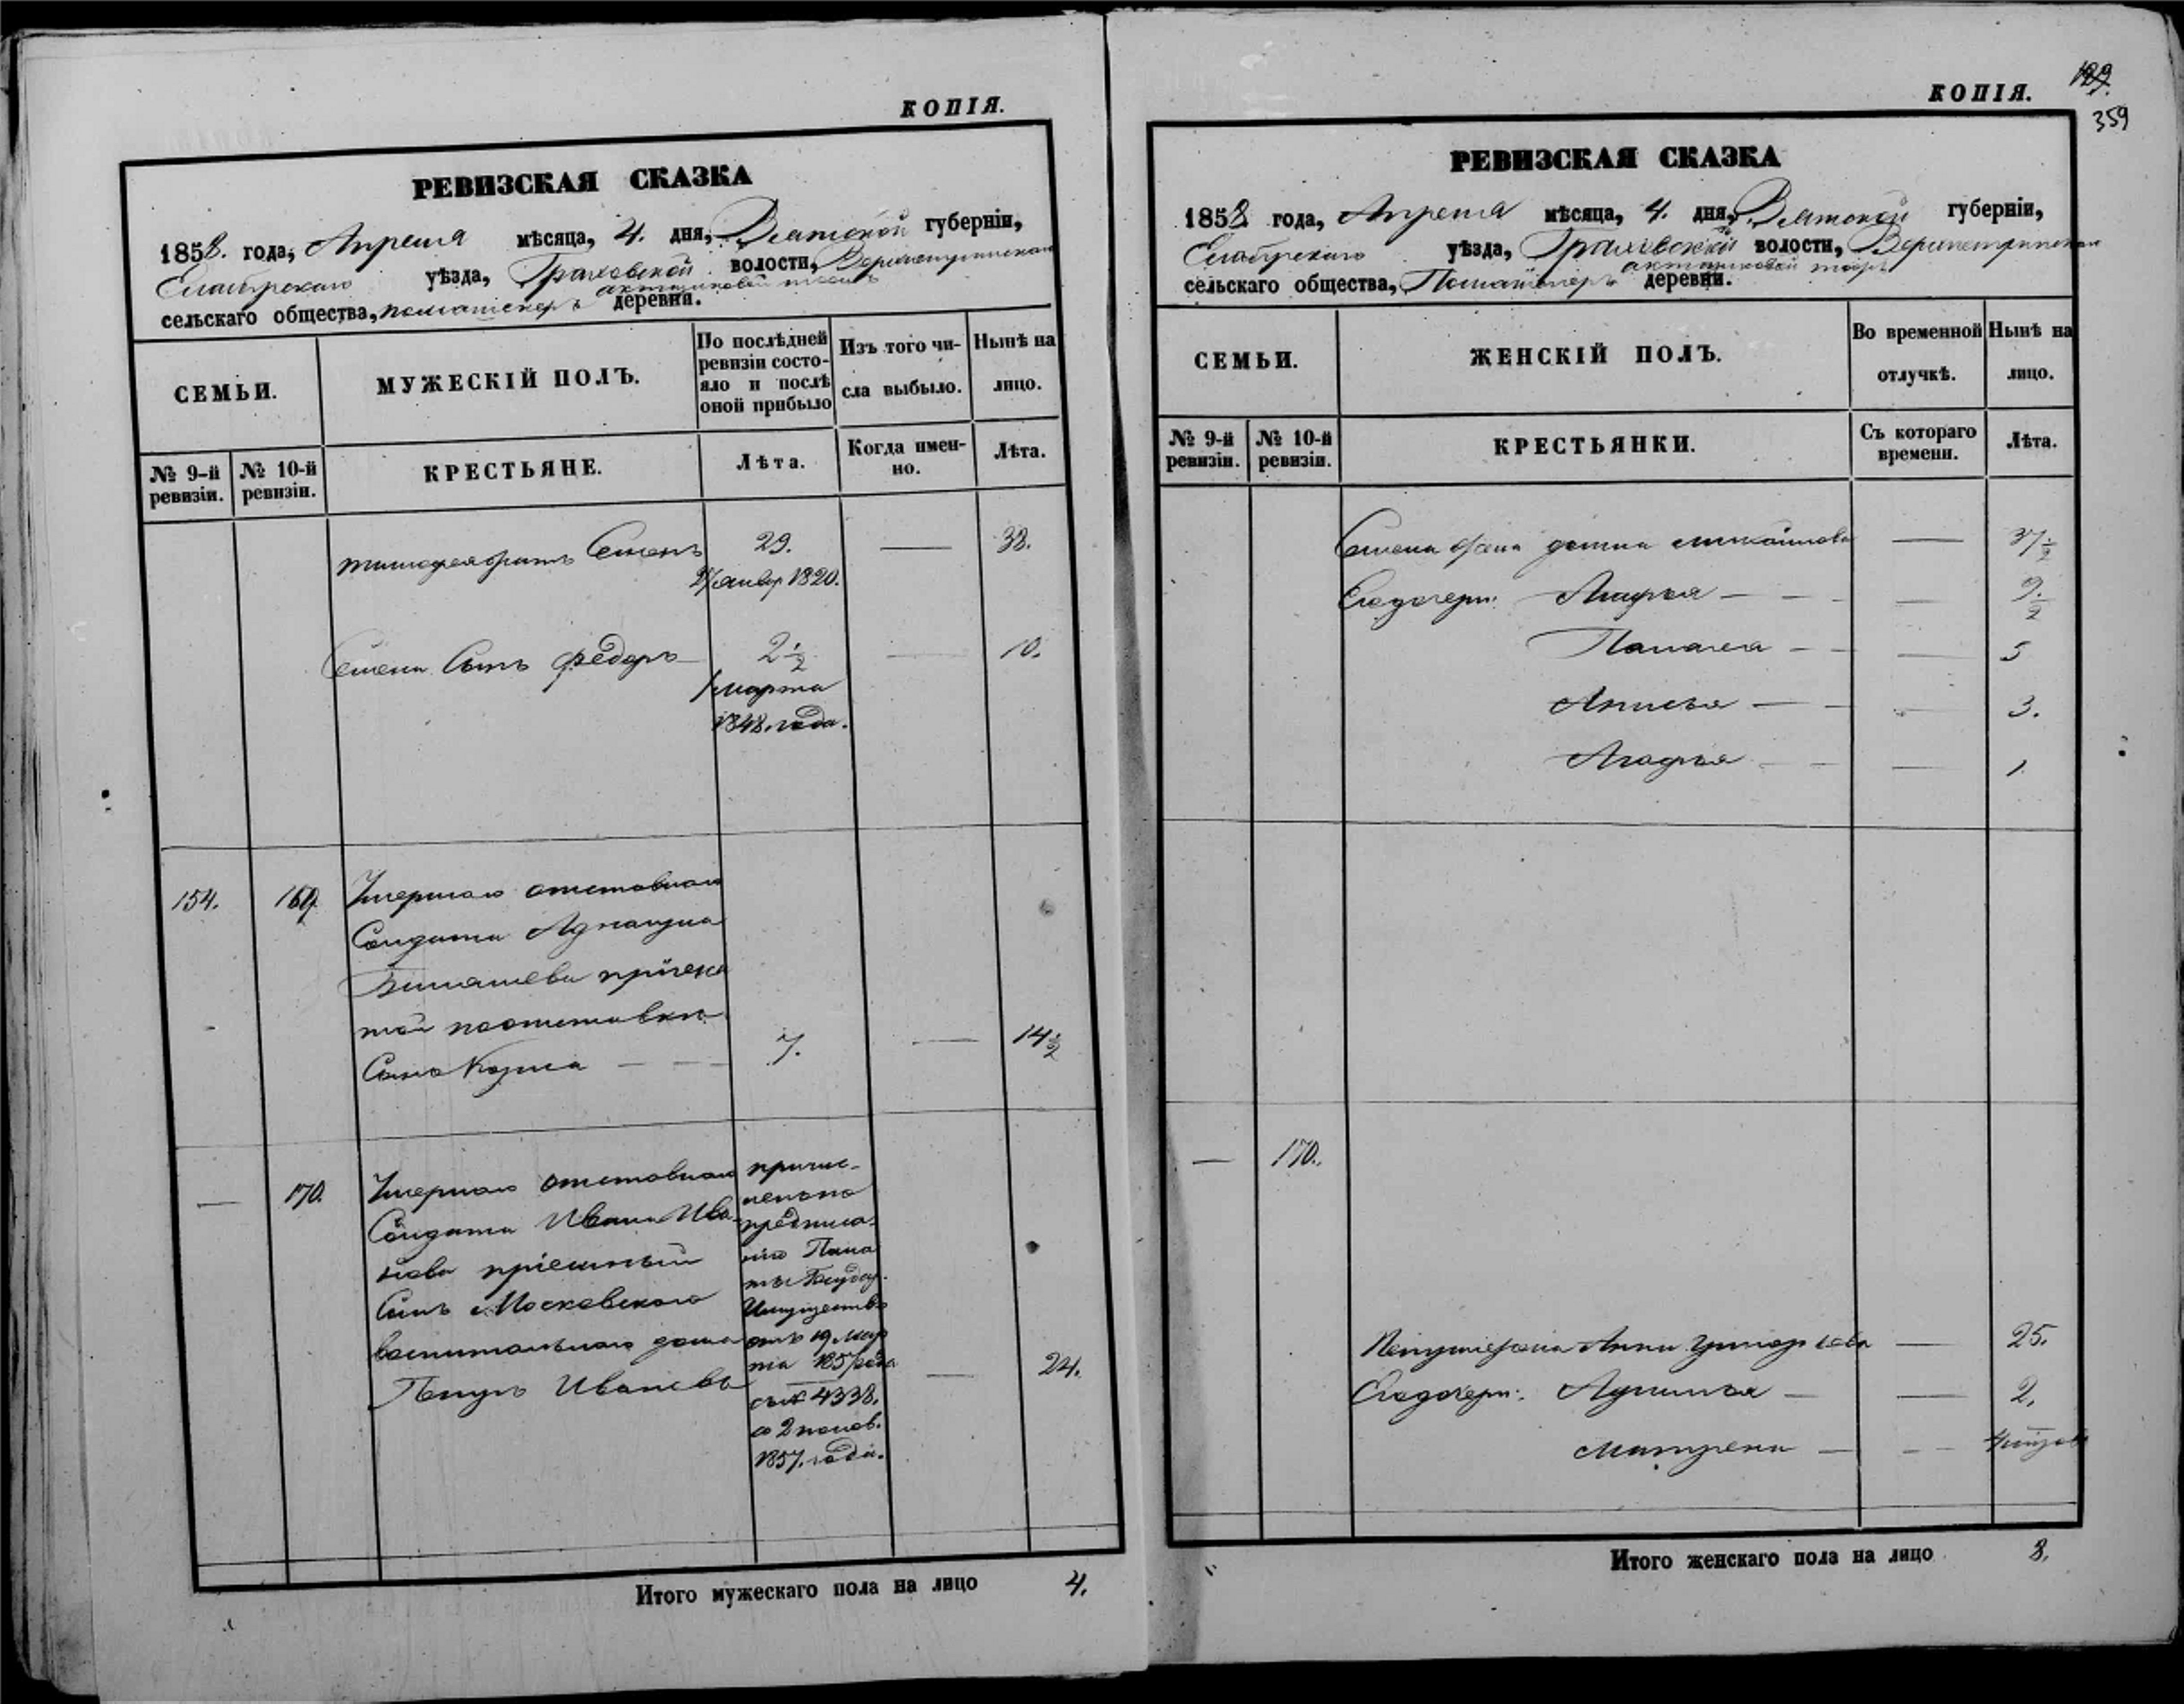 КОПІЯ.
РЕВИЗСКАЯ СКАЗКА
1858. года, Апреля мѣсяца, 4. дня, Вятской губерніи,
Елабужскаго уѣзда, Граховской волости,
сельскаго общества, деревни.
СЕМЬИ.
МУЖЕСКІЙ ПОЛЪ.
По послѣдней ревизіи состо-
яло и послѣ оной прибыло
Изъ того чи-
сла выбыло.
Нынѣ на лицо.
№ 9-й ревизіи.
№ 10-й ревизіи.
КРЕСТЬЯНЕ.
Лѣта.
Когда имен-
но.
Лѣта.
Тимофея братъ Семенъ 29. — 38.
1820.
Семена Сынъ Федоръ 2 1/2 — 10.
1 марта
1848. года.
154. 169. Умершаго отставнаго
Солдата
той по отставки
Сынъ Козма — — 7. — 14 1/2
— 170. Умершаго отставнаго
Солдата Ивана Ива-
нова пріемный
Сынъ Московскаго
воспитательнаго дома
Ивановъ — 24.
причис-
ленъ по
предписа-
нію Пала
ты Государ.
Имуществъ
отъ 19 мар
та 1857 года
за № 4338.
со 2 полов.
1857. года.
Итого мужескаго пола на лицо 4.
КОПІЯ.
129.
359
РЕВИЗСКАЯ СКАЗКА
1858 года, Апреля мѣсяца, 4. дня, Вятской губерніи,
Елабужскаго уѣзда, Граховской волости,
сельскаго общества, деревни.
СЕМЬИ.
ЖЕНСКІЙ ПОЛЪ.
Во временной отлучкѣ.
Нынѣ на лицо.
№ 9-й ревизіи.
№ 10-й ревизіи.
КРЕСТЬЯНКИ.
Съ котораго времени.
Лѣта.
Семена жена Михайлова — 37 1/2
Его дочери: — — — 9 1/2
Палагея — — — 5
Анисья — — — 3.
Агафья — — — 1.
— 170.
жена Анна Григорьева — 25.
Его дочери: — — 2.
Матрена — — —
Итого женскаго пола на лицо 8.